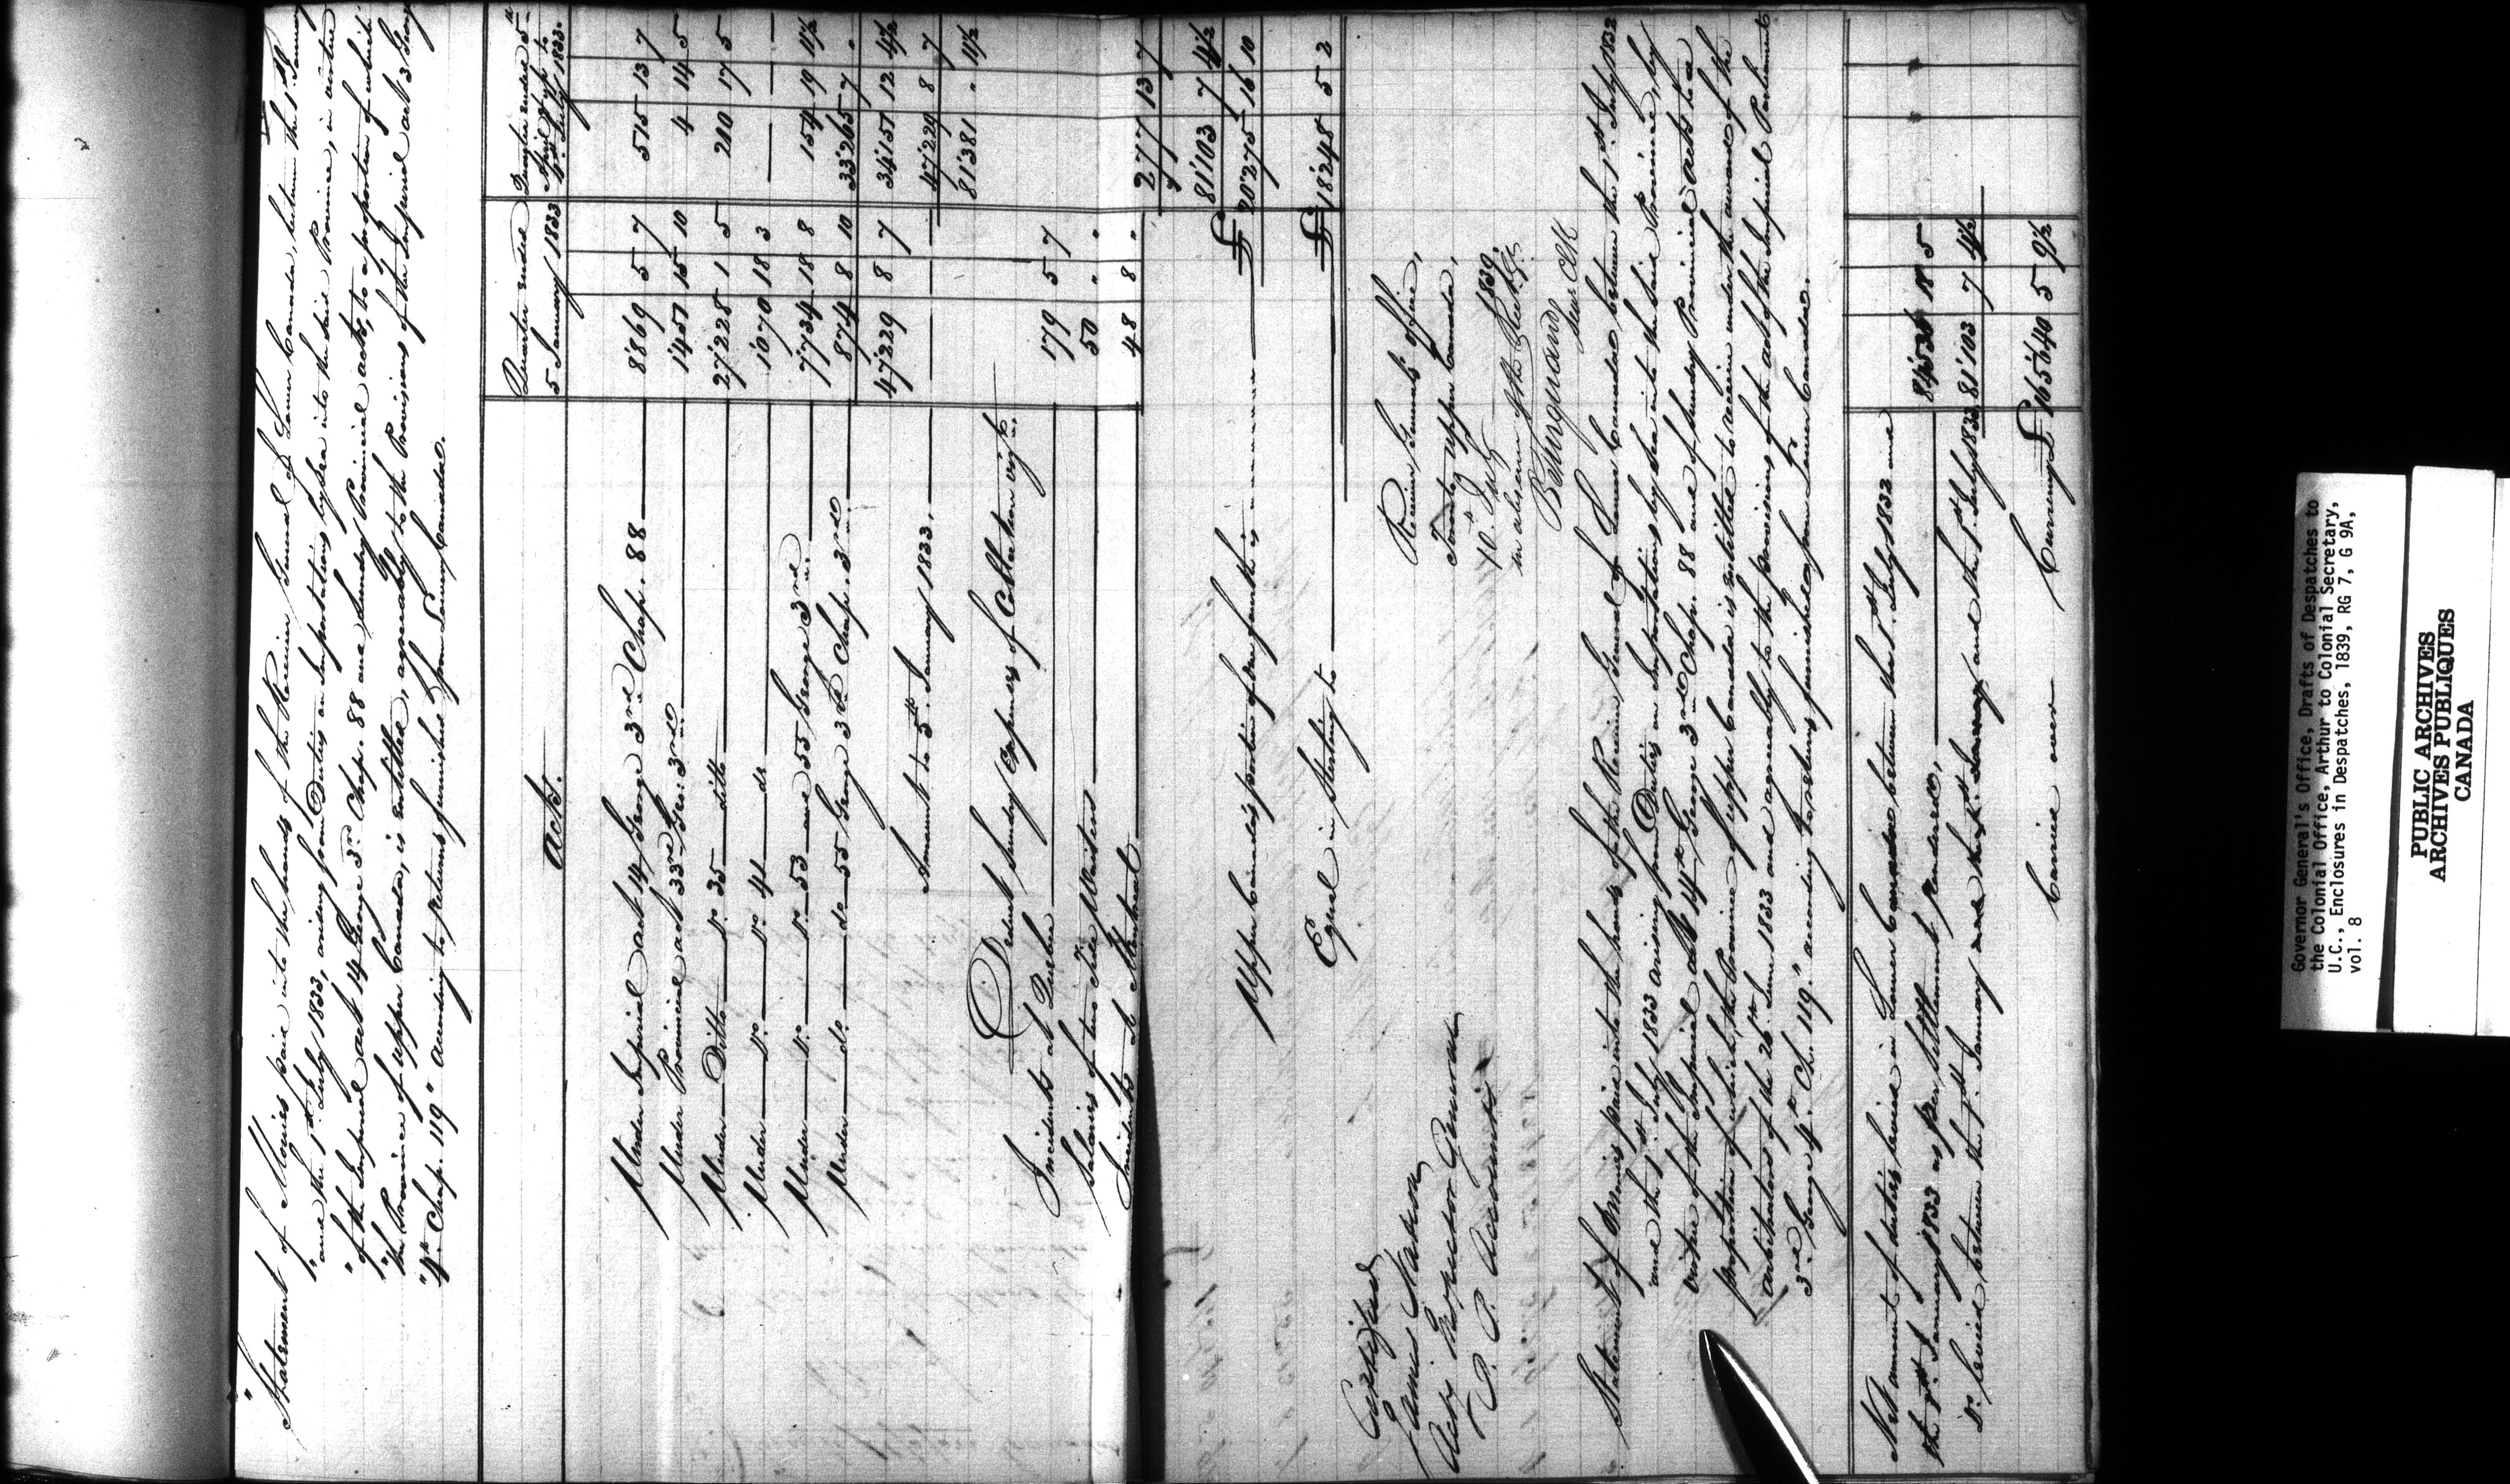 "Statement of Monies paid into the hands of the Receiver General of Lower Canada, between the 1st January
" and the 1st July 1833, arising from Duties on Importations by sea into the said Province, in virtue
" of the Imperial Act 14 George 3rd Chap. 88 and Sundry Provincial acts, to a proportion of which
" the Province of Upper Canada, is entitled, agreeably to the Provisions of the Imperial act 3 George
" 4th Chap. 119" according to Returns furnished from Lower Canada.
Acts.
Quarter ended 5 January 1833
Quarter ended 5th April & up to 1st July 1833.
Under Imperial act 14 George 3rd Chap. 88 — 8869 5 7 515 13 7
Under Provincial act 33rd Geo: 3rd 1451 15 10 4 14 5
Under — Ditto — Do 35 — ditto — 27228 1 5 210 17 5
Under — Do — 41 — do — 1070 18 3 — — —
Under — Do — 53 — and 55 George 3rd 7734 18 8 154 19 11½
Under — do — 55 George 3rd Chap. 3rd 874 8 10 33265 7 "
47229 8 7 34151 12 4½
Amount to 5th January 1833, — — — 47229 8 7
81381 " 11½
Deduct Sundry Expenses of Collection vizt.
Incidents at Quebec 179 5 7
Salaries of two Tide Waiters 50 " "
Incidents at Montreal 48 8 " 277 13 7
81103 7 4½
Upper Canada's portion of one fourth is £ 20275 16 10
Equal in Sterling to £ 18248 5 2
Certified
James Nation
Actg Inspector General
P. P. Accounts
Receiver General's Office,
Toronto, Upper Canada,
10th July 1839.
In absence of the Recr. Gl.
B Turquand
Senr Clk
Statement of Monies paid into the hands of the Receiver General of Lower Canada between the 1st July 1832
and the 1st July 1833 arising from Duties on Importations by sea into the said Province, by
virtue of the Imperial Act 14th George 3rd Chap. 88 and of sundry Provincial acts to a
proportion of which, the Province of Upper Canada is entitled to receive under the award of the
Arbitrators of the 26th June 1833 and agreeably to the provisions of the act of the Imperial Parliament
3rd George 4th Ch. 119" according to returns furnished from Lower Canada.
Net amount of duties levied in Lower Canada between the 1st July 1832 and
the 1st January 1833 as per Settlement rendered, 18 5
Do levied between the 1st January and the 1st July 1833, 81103 7 4½
Carried over Currency £ 165640 5 9½
Governor General's Office, Drafts of Despatches to
the Colonial Office, Arthur to Colonial Secretary,
U.C., Enclosures in Despatches, 1839, RG 7, G 9A,
vol. 8
PUBLIC ARCHIVES
ARCHIVES PUBLIQUES
CANADA